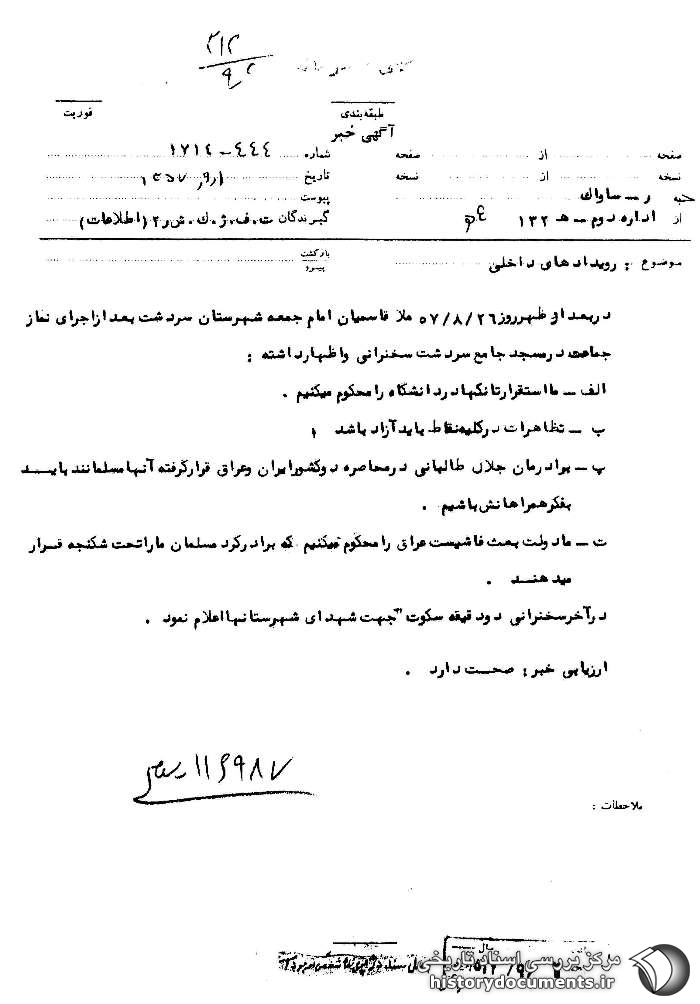 ۳۱۲
طبقه‌بندی
فوریت
آگهی خبر
صفحه از صفحه شماره ۴۴۴-۱۷۱۴
نسخه از نسخه تاریخ ۱۳۵۷/۹/۱
به ر - ساواک پیوست
از اداره دوم - هـ ۱۳۲ گیرندگان ت. ف. ژ. ك. ش ر۲ (اطلاعات)
موضوع : رویدادهای داخلی بازگشت پیرو
در بعد از ظهر روز ۵۷/۸/۲۶ ملا قاسمیان امام جمعه شهرستان سردشت بعد از اجرای نماز
جماعت در مسجد جامع سردشت سخنرانی و اظهار داشته :
الف - ما استقرار تانکها در دانشگاه را محکوم میکنیم .
ب - تظاهرات در کلیه نقاط باید آزاد باشد
پ - برادرمان جلال طالبانی در محاصره دو کشور ایران و عراق قرار گرفته آنها مسلمانند بایـد
بفکر همراهانش باشیم .
ت - ما دولت بعث فاشیست عراق را محکوم میکنیم که برادر کرد مسلمان ما را تحت شکنجه قـرار
میدهنـد .
در آخر سخنرانی دو دقیقه سکوت " جهت شهدای شهرستانها اعلام نمود .
ارزیابی خبر : صحـت دارد .
ملاحظات :
سال
مرکز بررسی اسناد تاریخی
historydocuments.ir